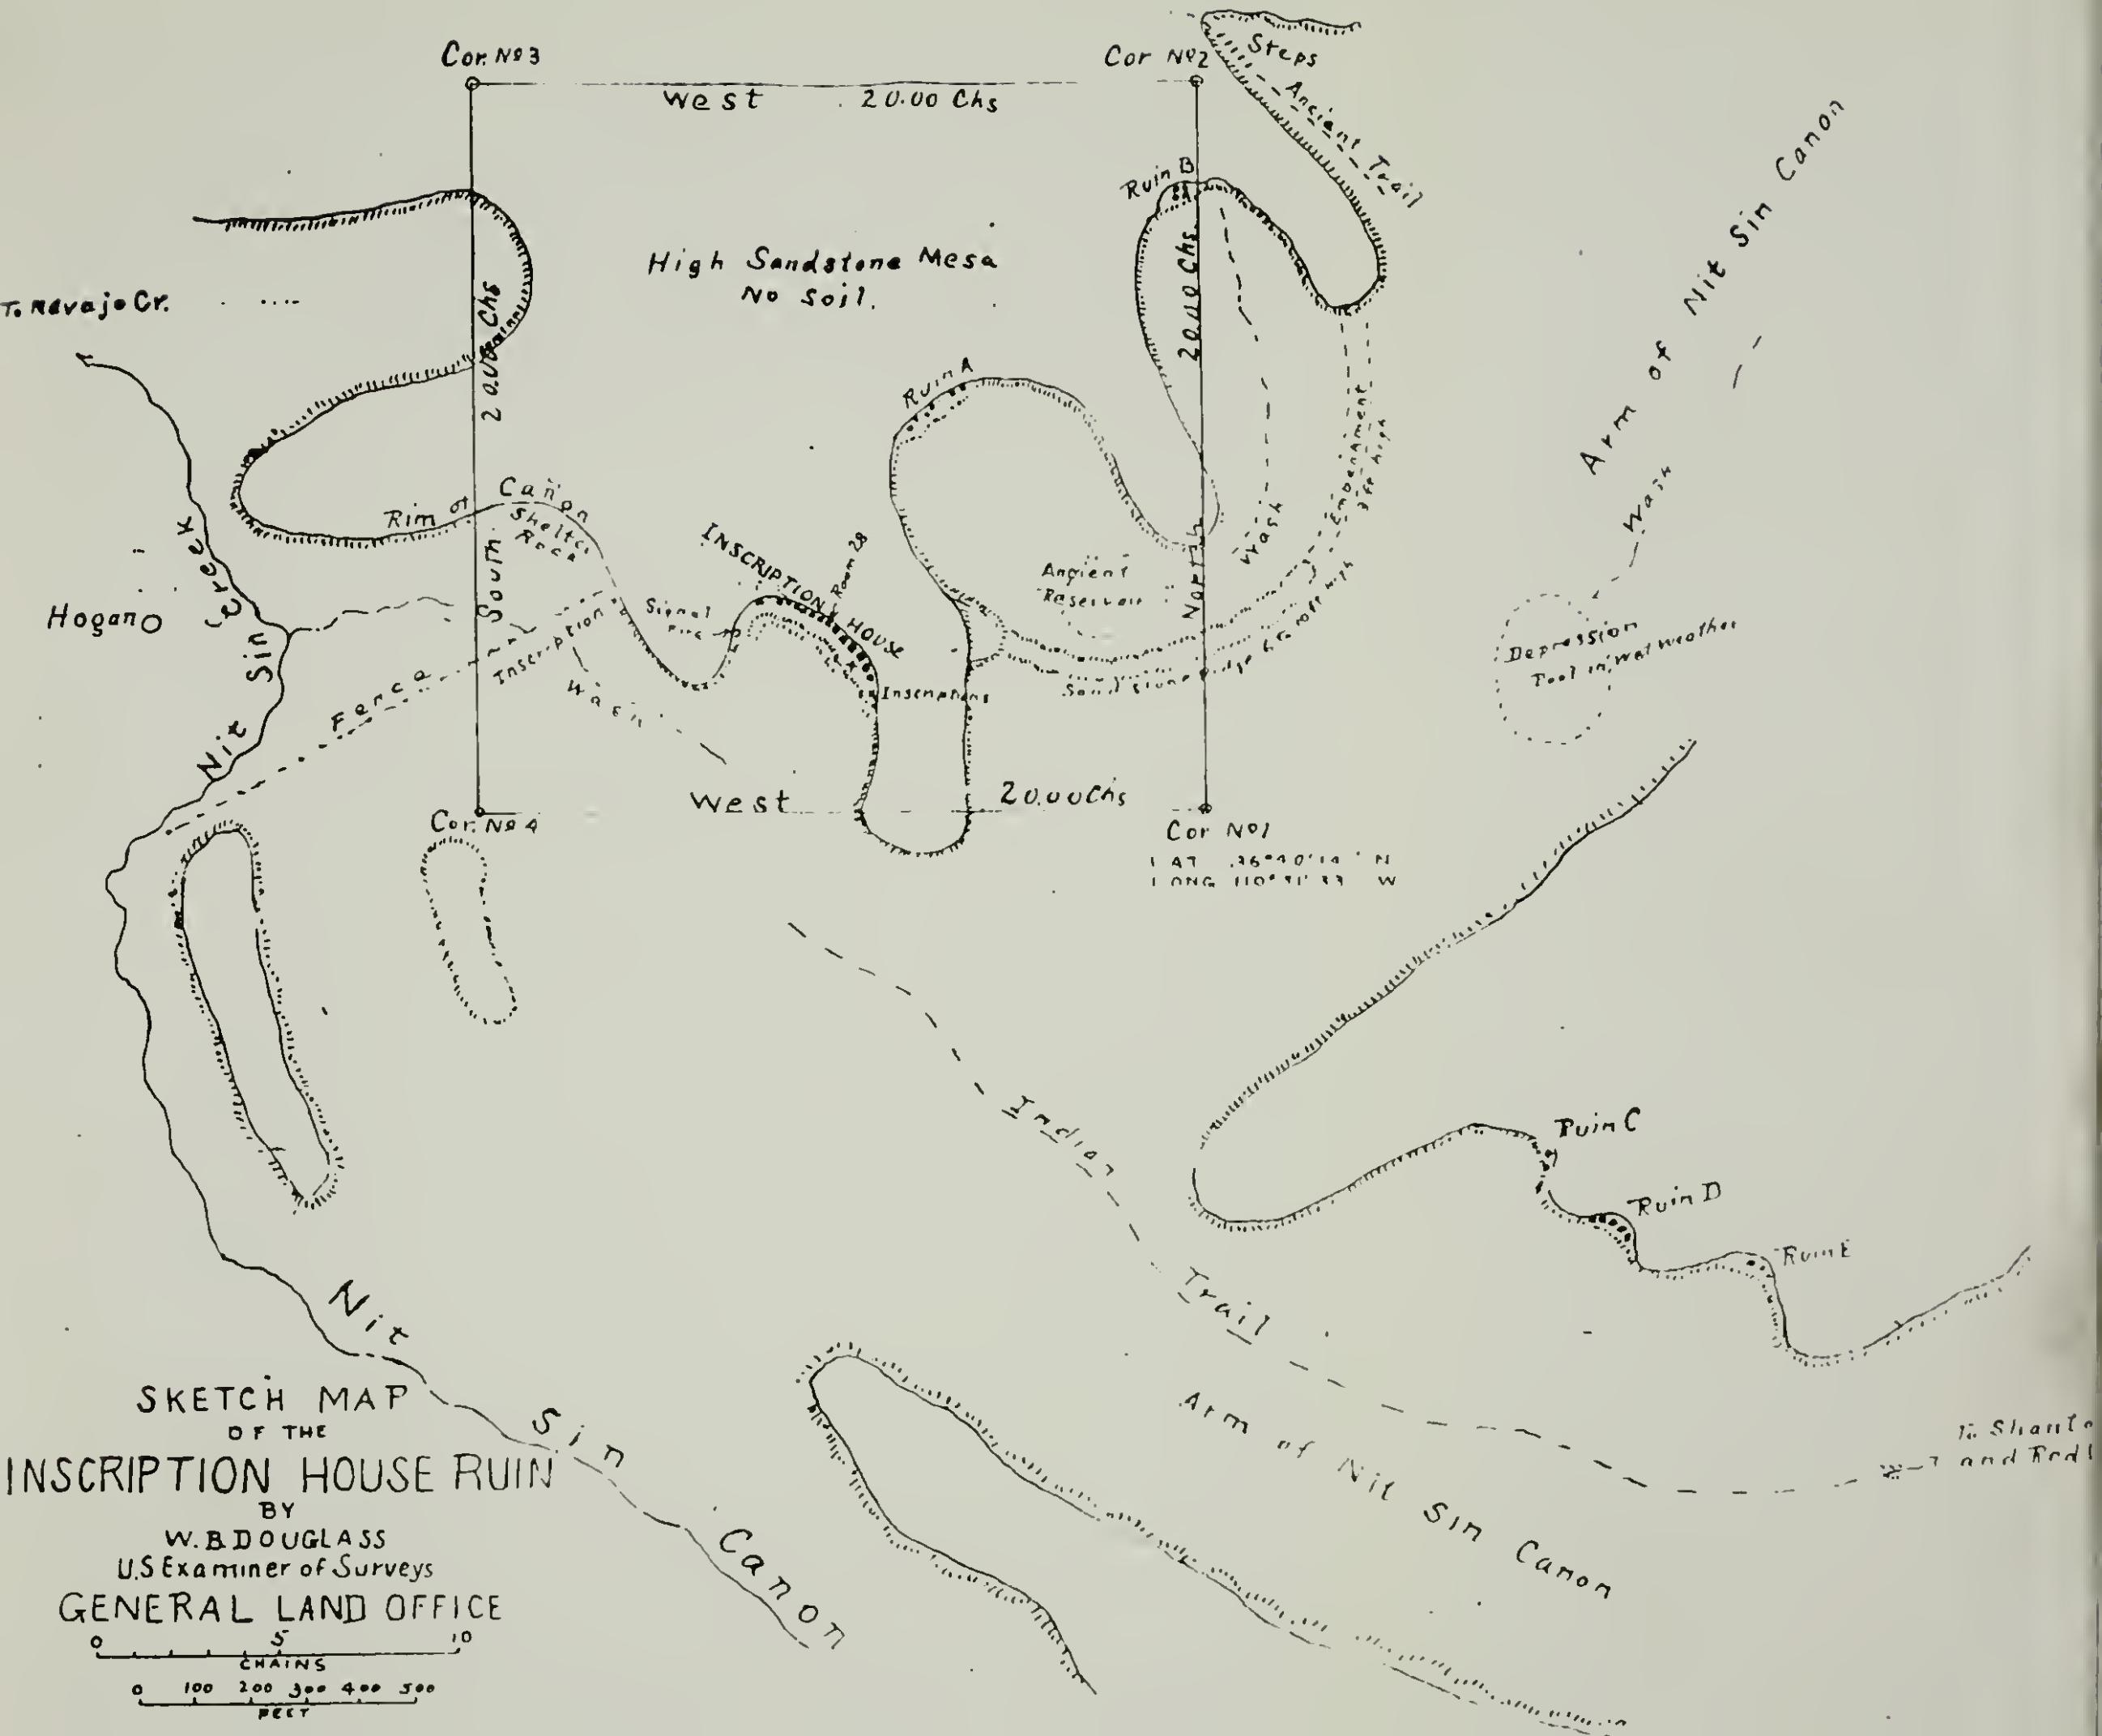 Cor. Nº 3
Cor Nº 2
West 20.00 Chs
Steps
Ancient Trail
Ruin B
High Sandstone Mesa
No Soil.
To Navajo Cr.
20.00 Chs
20.00 Chs
Arm of Nit Sin Canon
Wash
Ruin A
Rim of Cañon
Shelter
Rock
INSCRIPTION HOUSE
Room 28
Signal
Fire
Ancient
Reservoir
Wash
Embankment
high
North
South
Hogan
Nit Sin Creek
Fence
Inscription
Wash
Inscriptions
Sandstone Ridge
high
Depression
Pool in Wet Weather
West 20.00 Chs
Cor. Nº 4
Cor Nº 1
LAT N
LONG W
Indian Trail
Ruin C
Ruin D
Ruin E
Nit Sin Canon
Arm of Nit Sin Canon
To
and
SKETCH MAP
OF THE
INSCRIPTION HOUSE RUIN
BY
W. B DOUGLASS
U.S Examiner of Surveys
GENERAL LAND OFFICE
0 5 10
CHAINS
0 100 200 300 400 500
FEET